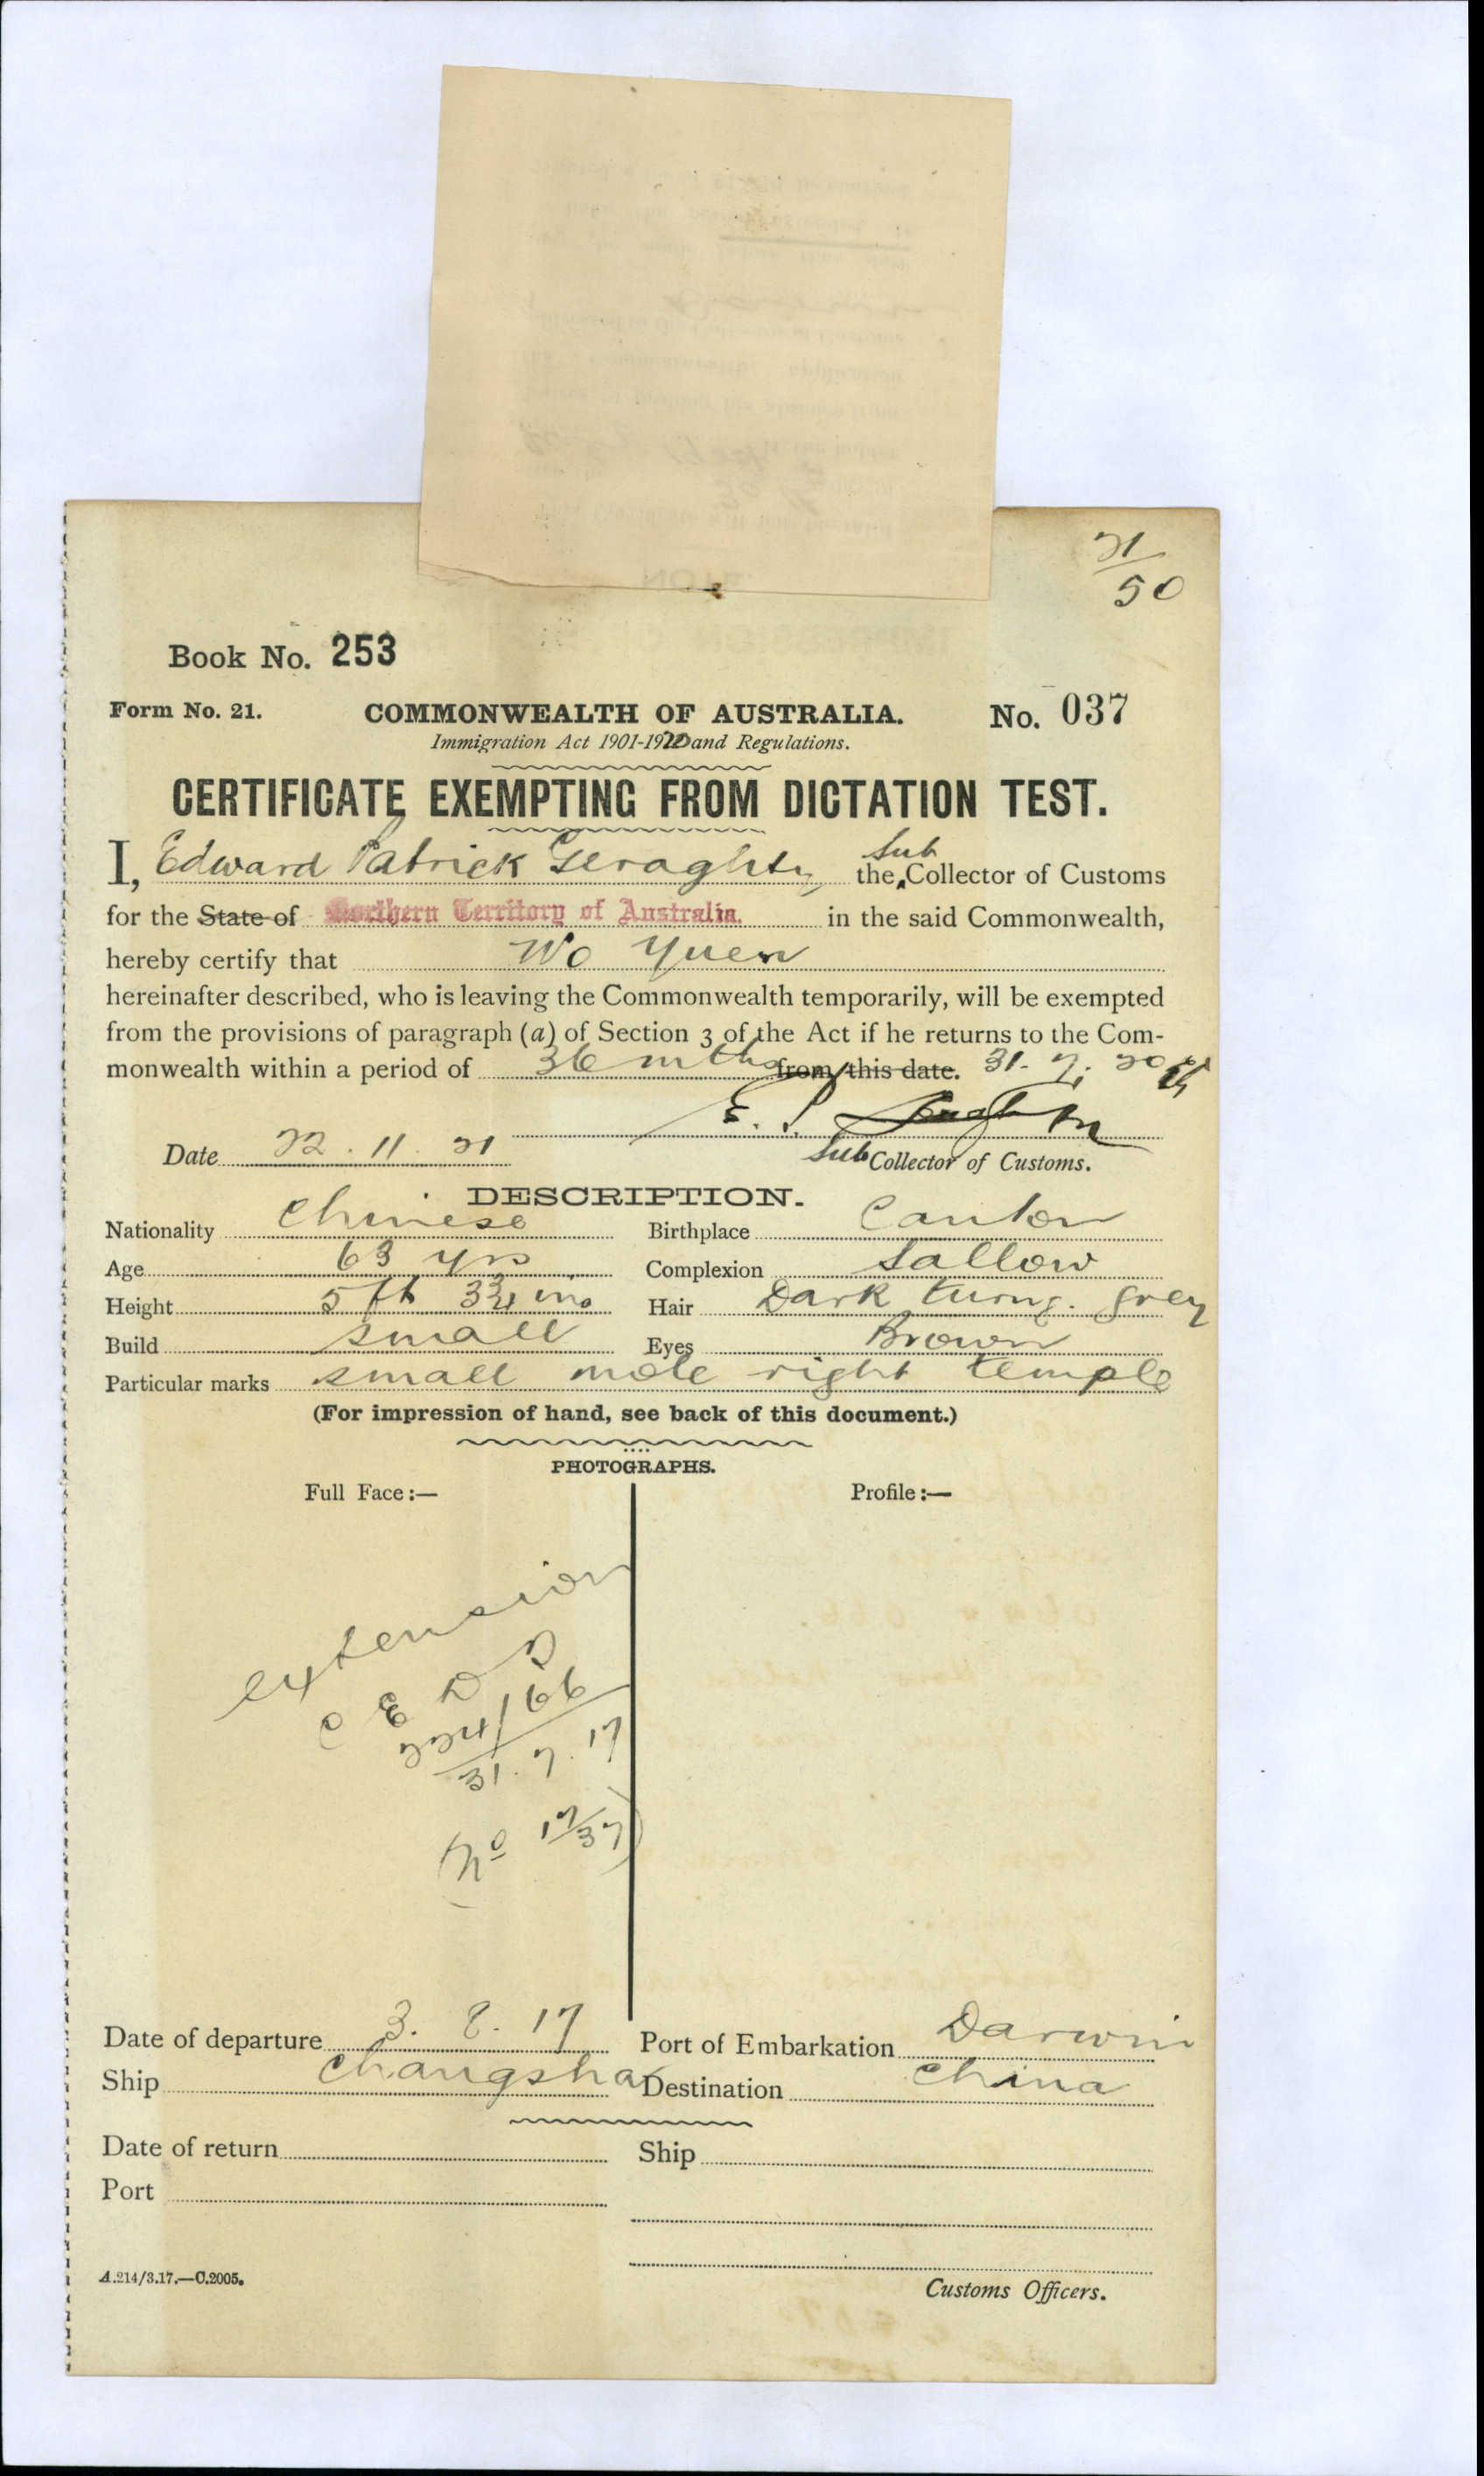 21/50
Book No. 253
Form No. 21. COMMONWEALTH OF AUSTRALIA. No. 037
Immigration Act 1901-1920 and Regulations.
CERTIFICATE EXEMPTING FROM DICTATION TEST.
I, Edward Patrick Geraghty the Sub Collector of Customs
for the State of Northern Territory of Australia. in the said Commonwealth,
hereby certify that Wo Yuen
hereinafter described, who is leaving the Commonwealth temporarily, will be exempted
from the provisions of paragraph (a) of Section 3 of the Act if he returns to the Com-
monwealth within a period of 36 mths from this date. 31. 7. 20
E. P. Geraghty
Date 22. 11. 21 Sub Collector of Customs.
DESCRIPTION.
Nationality Chinese Birthplace Canton
Age 63 yrs Complexion Sallow
Height 5 ft 3 3/4 ins Hair Dark turng. grey
Build small Eyes Brown
Particular marks small mole right temple
(For impression of hand, see back of this document.)
PHOTOGRAPHS.
Full Face:— Profile:—
extension
C E D T
224/66
31. 7. 17
(No 17/37)
Date of departure 3. 8. 17 Port of Embarkation Darwin
Ship Changsha Destination China
Date of return Ship
Port
A.214/3.17.—C.2005. Customs Officers.